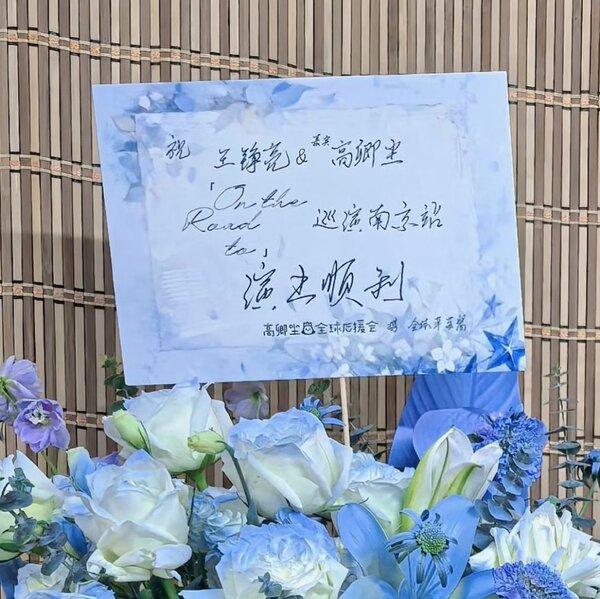 祝 王铮亮 & 嘉宾 高卿尘
「On the
Road 巡演南京站
to」
演出顺利
高卿尘全球后援会